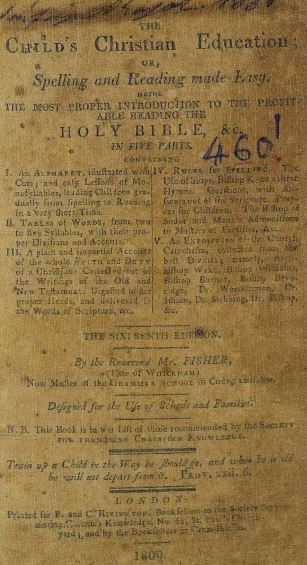 THE
CHILD's Christian Education;
OR,
Spelling and Reading made Easy.
BEING
THE MOST PROPER INTRODUCTION TO THE PROFIT-
ABLE READING THE
HOLY BIBLE, &c.
IN FIVE PARTS.
460!
CONTAINING
I. AN ALPHABET, illustrated with
Cuts; and easy Lessons of Mo-
nosyllables, leading Children gra-
dually from Spelling to Reading,
in a very short Time.
II. TABLES of WORDS, from two
to five Syllables, with their pro-
per Divisions and Accents.
III. A plain and impartial Account
of the whole FAITH and DUTY
of a Christian: Collected out of
the Writings of the Old and
New Testament: Digested under
proper Heads, and delivered in
the Words of Scripture, &c.
IV. RULES for SPELLING. The
Use of Stops, Bishop
Hymn, Questions, with An-
swers out of the Scripture. Pray-
ers for Children. The Bishop of
Sodor and Man's Admonitions
to Masters of Families, &c.
V. An EXPOSITION of the Church
Catechism, collected from the
best Divines; namely,
Bishop Wake, Bishop Williams,
Bishop Burnet, Bishop Beve-
ridge, Dr. Worthington, Dr.
Isham, Dr. Stebbing, Dr. Bishop,
&c.
THE SIXTEENTH EDITION.
By the Reverend Mr. FISHER,
(Late of WHICKHAM)
Now Master of the GRAMMAR SCHOOL in COCKERMOUTH.
Designed for the Use of Schools and Families.
N. B. This Book is in the List of those recommended by the SOCIETY
FOR PROMOTING CHRISTIAN KNOWLEDGE.
Train up a Child in the Way he should go, and when he is old
he will not depart from it. PROV. xxii. 6.
LONDON:
Printed for F. and C. RIVINGTON, Booksellers to the Society
moting Christian Knowledge, No. 62, St. Paul's Church-
yard; and by the Booksellers in Great-Britain.
1800.